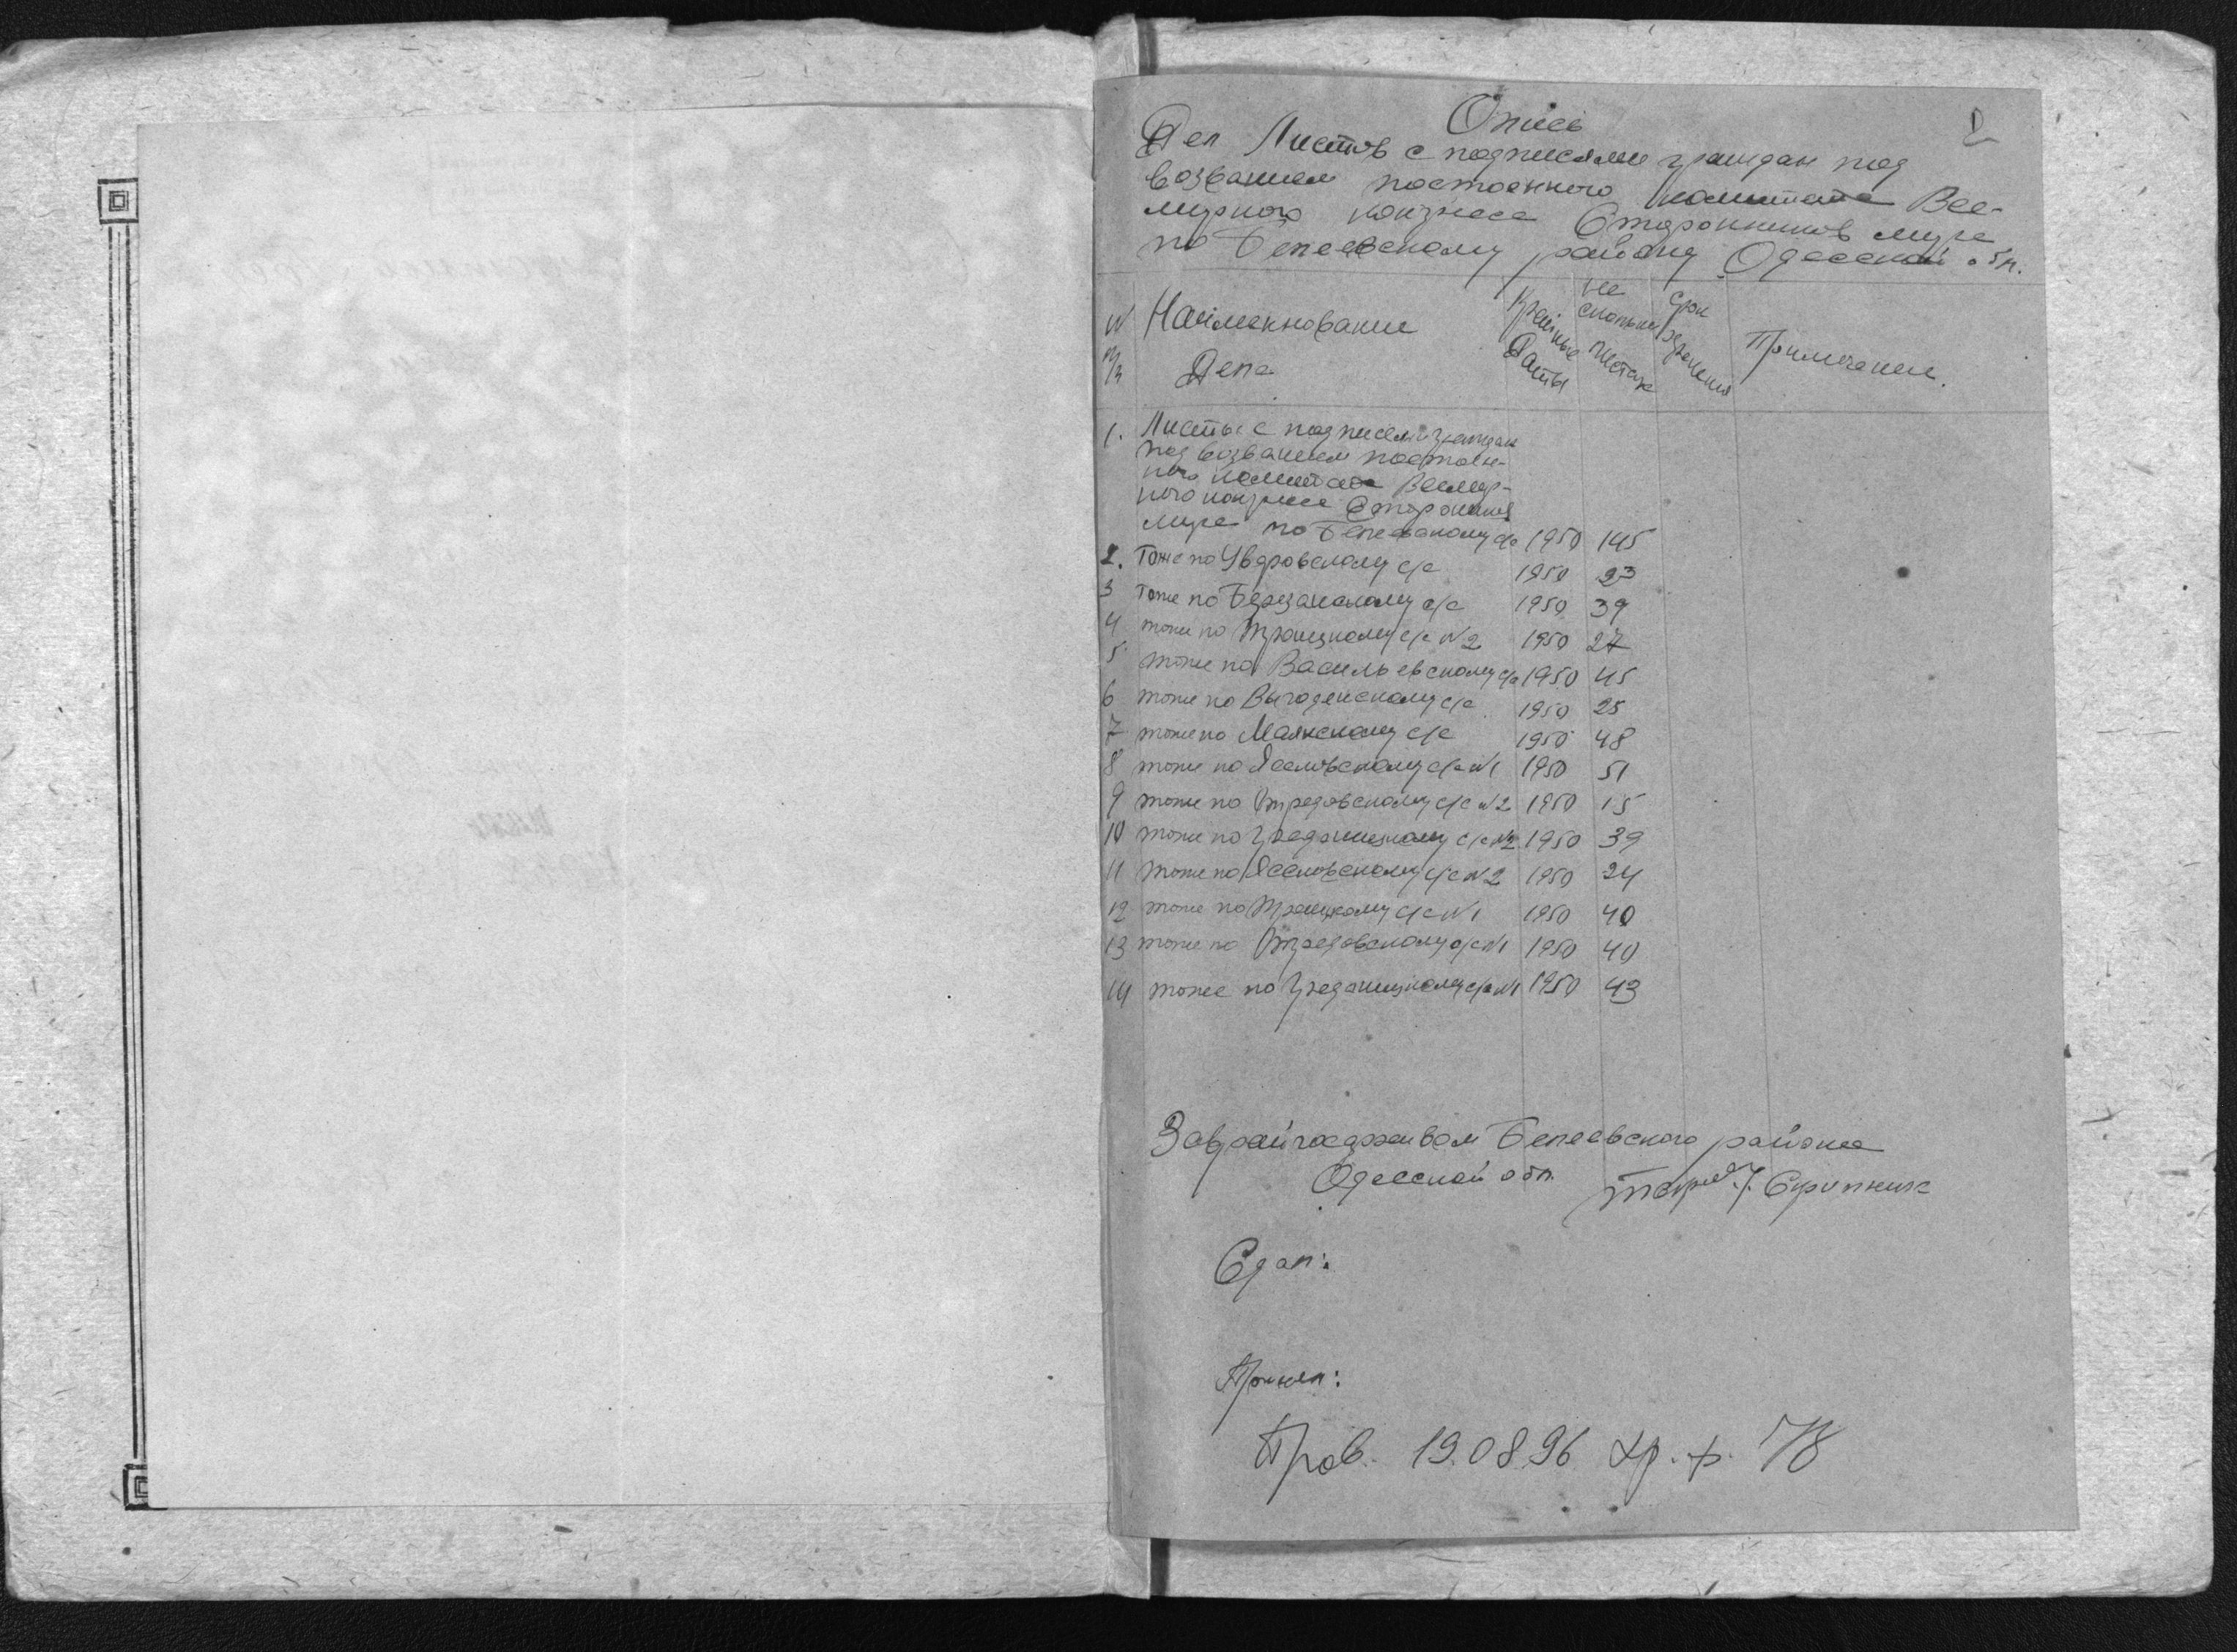 Опись
Дел Листов с подписями граждан под
возванием постоенного комитета Все-
мирного конгреса Сторонников мира
по Беляевскому району Одесской обл.
№ п/з
Наименование Дела
Крайные Даты
на сколькы листах
Срок хранения
Примечание.
1. Листы с подписями граждан
под возванием постоян-
ного комитета Всемир-
ного конгреса Сторонников
мира по Беляевскому с/с 1950 145
2. Тоже по Уваровскому с/с 1950 23
3 Тоже по Березанскому с/с 1950 39
4 тоже по Троицкому с/с №2 1950 27
5 тоже по Васильевскому с/с 1950 45
6 тоже по Выгодянскому с/с 1950 25
7 тоже по Маякскому с/с 1950 48
8 тоже по Ясковскому с/с №1 1950 51
9 тоже по Отрадовскому с/с №2 1950 15
10 тоже по Граданицкому с/с №2 1950 39
11 тоже по Ясковскому с/с №2 1950 24
12 тоже по Троицкому с/с №1 1950 40
13 тоже по Отрадовскому с/с №1 1950 40
14 тоже по Граданицкому с/с №1 1950 43
Заврайгосархивом Беляевского района
Одесской обл. Скрипник
Сдал:
Принял:
Пров. 19.08.96 хр. ф.